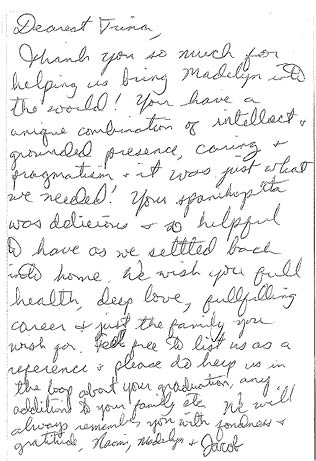 Dearest Trina,
Thank you so much for
helping us bring Madelyn into
the world! You have a
unique combination of intellect +
grounded presence, caring +
pragmatism + it was just what
we needed! Your spanikopita
was delicious + so helpful
to have as we settled back
into home. We wish you full
health, deep love, fullfilling
career + just the family you
wish for. Feel free to list us as a
reference + please do keep us in
the loop about your graduation, any
additions to your family etc. We will
always remember you with fondness +
gratitude, Naomi, Madelyn + Jacob